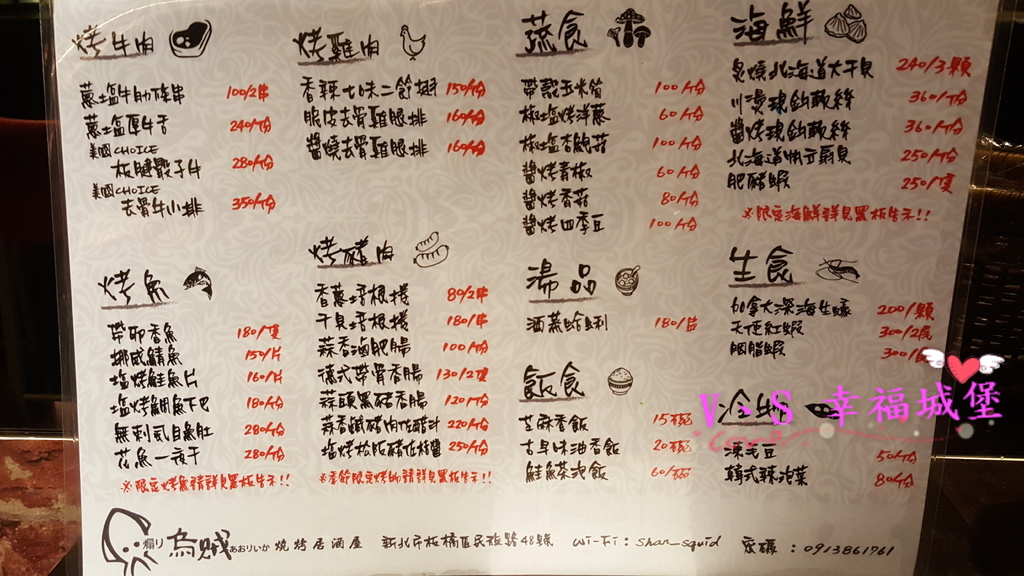 烤牛肉
蔥塩牛肋條串 100/2串
蔥塩厚牛舌 240/份
美國CHOICE
板腱骰子牛 280/份
美國CHOICE
去骨牛小排 350/份
烤雞肉
香辣七味二節翅 150/份
脆皮去骨雞腿排 160/份
醬燒去骨雞腿排 160/份
蔬食
帶殼玉米筍 100/份
椒塩烤洋蔥 60/份
椒塩杏鮑菇 100/份
醬烤青椒 60/份
醬烤香菇 80/份
醬烤四季豆 100/份
海鮮
炙燒北海道大干貝 240/3顆
川燙魂魠軟絲 360/份
醬烤魂魠軟絲 360/份
北海道帆立扇貝 250/份
肥豬蝦 250/隻
※限定海鮮請詳見黑板告示!!
烤魚
帶卵香魚 180/隻
挪威鯖魚 150/片
塩烤鮭魚片 160/片
塩烤鯛魚下巴 180/份
無刺虱目魚肚 280/份
花魚一夜干 280/份
※限定烤魚請詳見黑板告示!!
烤豬肉
香蔥培根捲 80/2串
干貝培根捲 180/串
蒜香鹹肥腸 100/份
德式帶骨香腸 130/2隻
蒜頭黑豬香腸 120/份
蒜香鹹豬肉佐醋汁 220/份
塩烤松阪豬佐辣醬 250/份
※季節限定烤物請詳見黑板告示!!
湯品
酒蒸蛤蜊 180/片
飯食
芝麻香飯 15/碗
古早味油香飯 20/碗
鮭魚茶泡飯 60/碗
生食
加拿大深海生蠔 200/顆
天使紅蝦 300/2隻
胭脂蝦 300/
冷物
凍毛豆 50/份
韓式辣泡菜 80/份
V、S 幸福城堡
煽り 烏賊 あおりいか 燒烤居酒屋 新北市板橋區民族路48號 Wi-Fi：shan_squid 密碼：0913861761